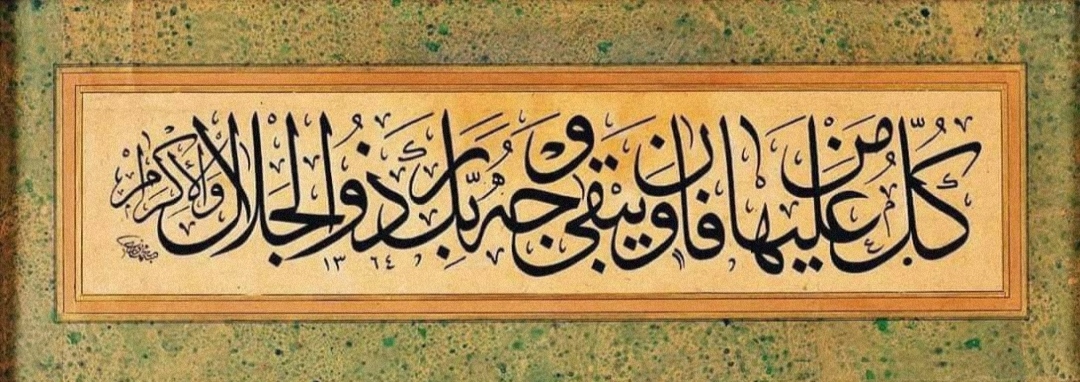 كُلُّ مَنْ عَلَيْهَا فَانٍ وَيَبْقَى وَجْهُ رَبِّكَ ذُو الْجَلَالِ وَالْإِكْرَامِ
١٣٦٤